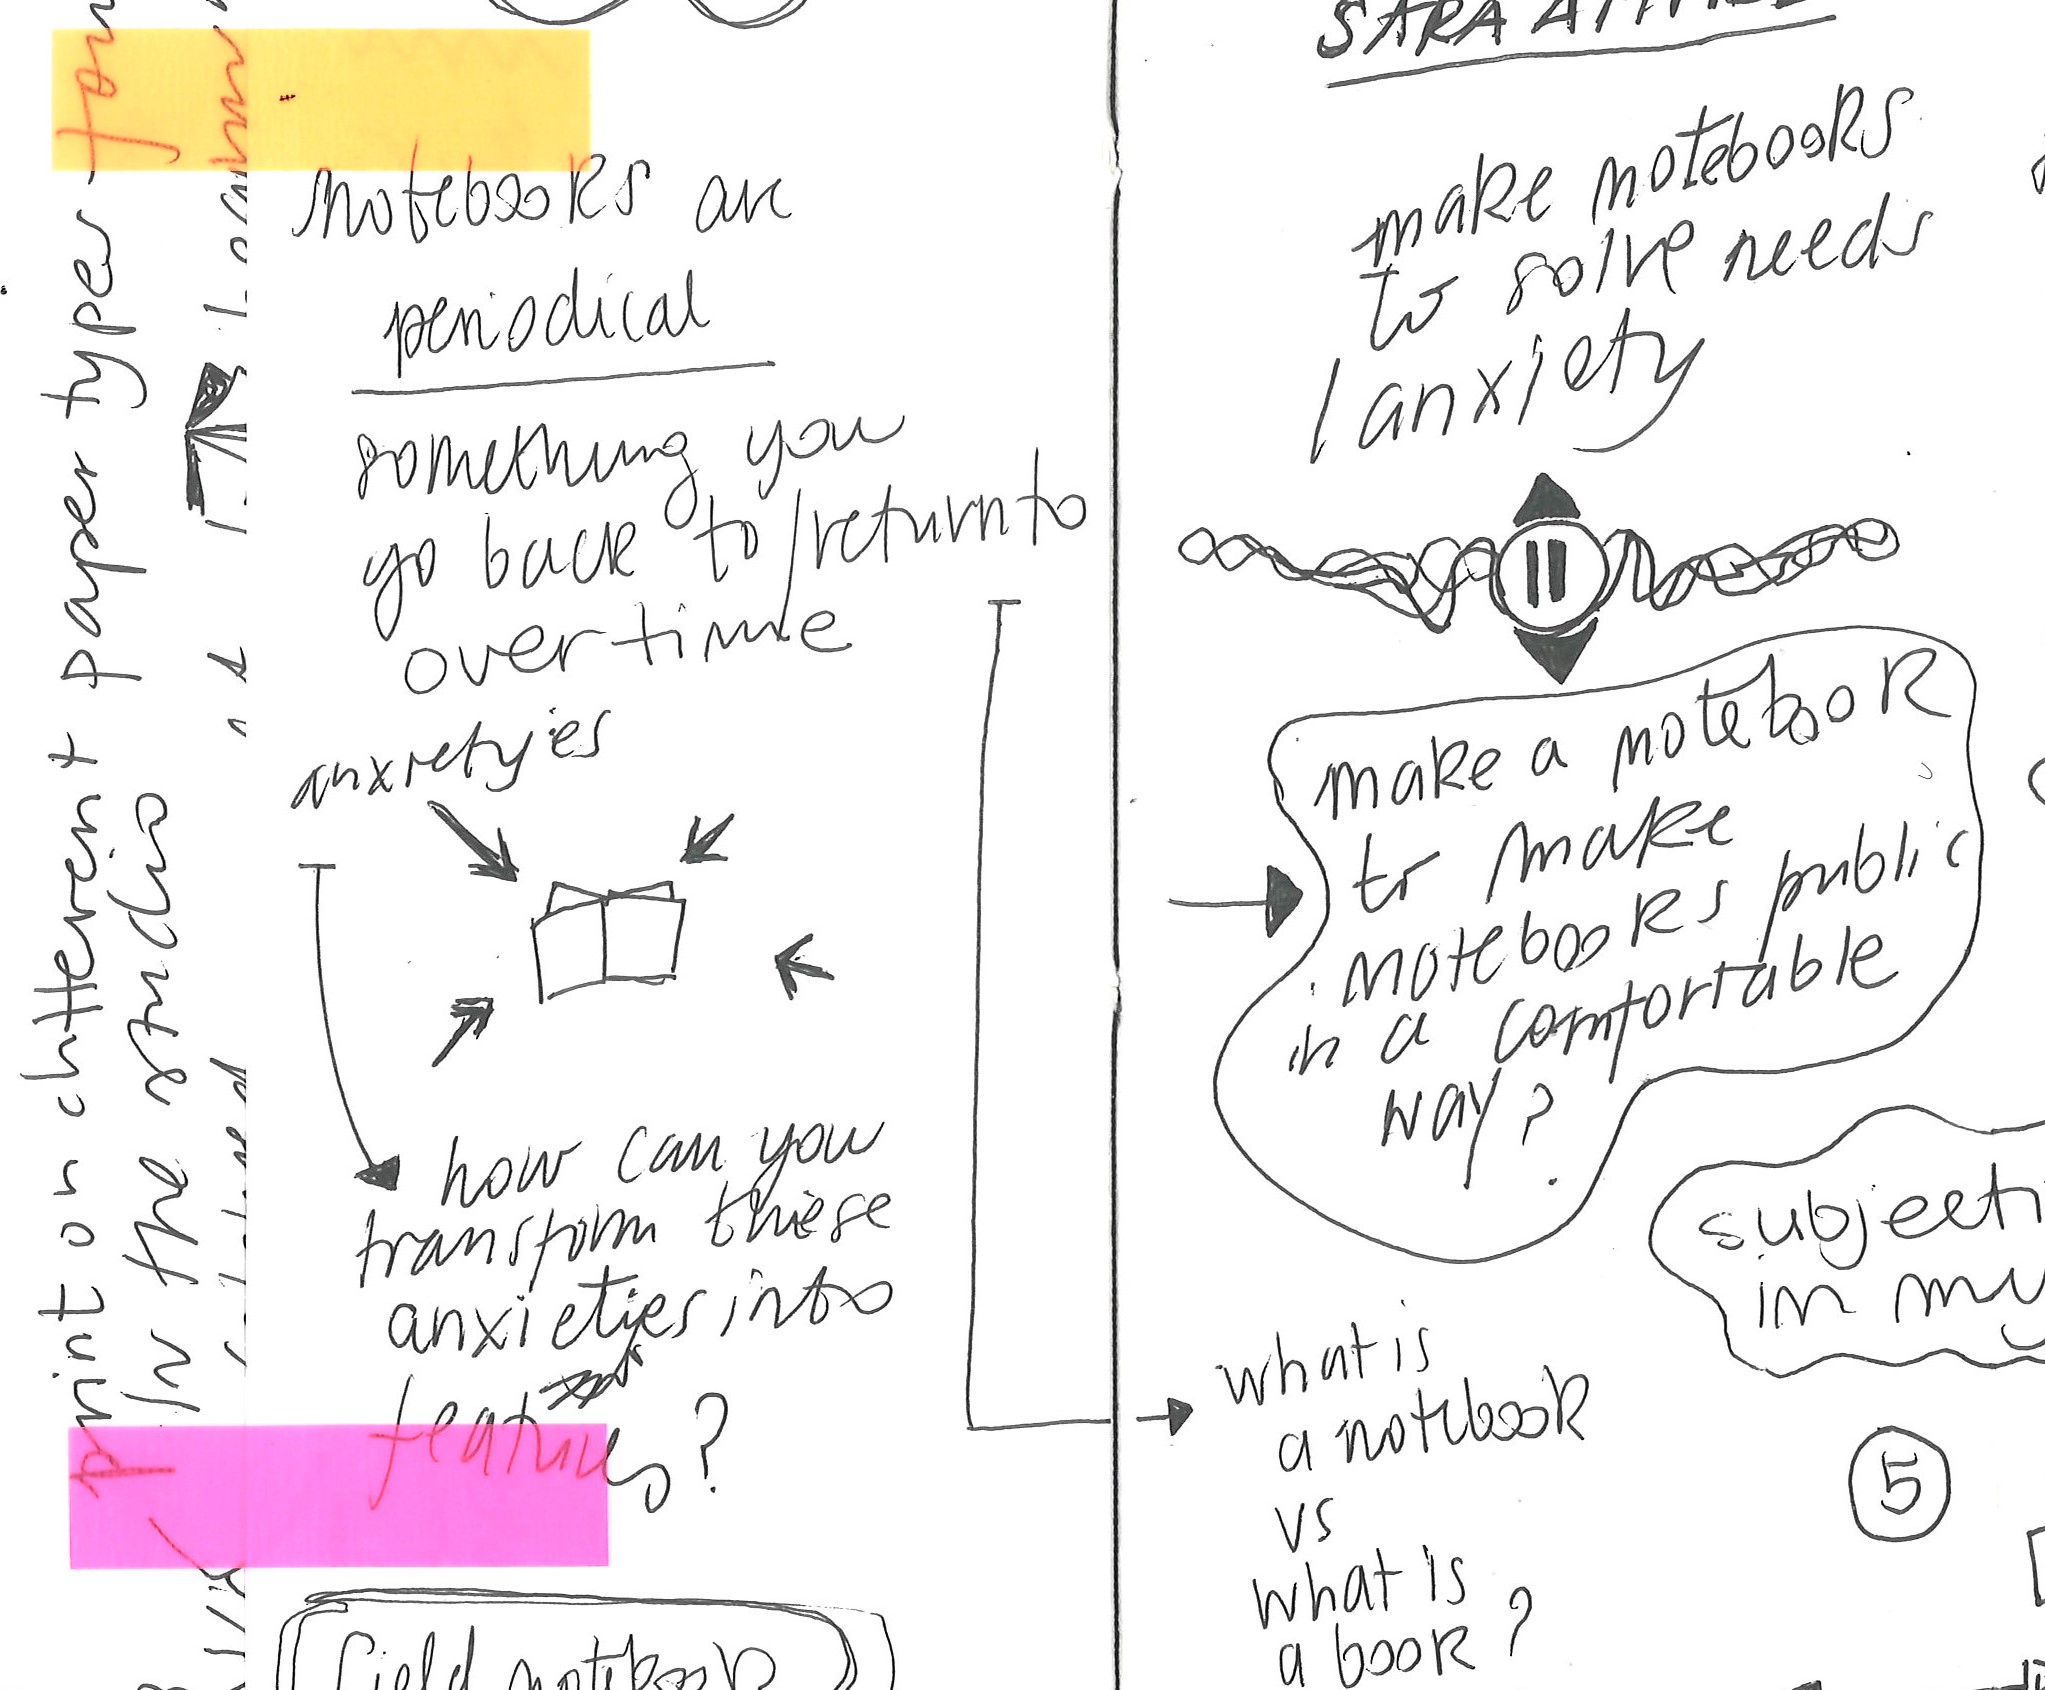 print on different paper types
in the studio
notebooks are
periodical
something you
go back to/return to
over time
anxietyies
how can you
transform these
anxietyies into
features?
field notebook
SARA
make notebooks
to solve needs
/anxiety
make a notebook
to make
notebooks public
in a comfortable
way?
subjecti
in my
what is
a notebook
vs
what is
a book?
5